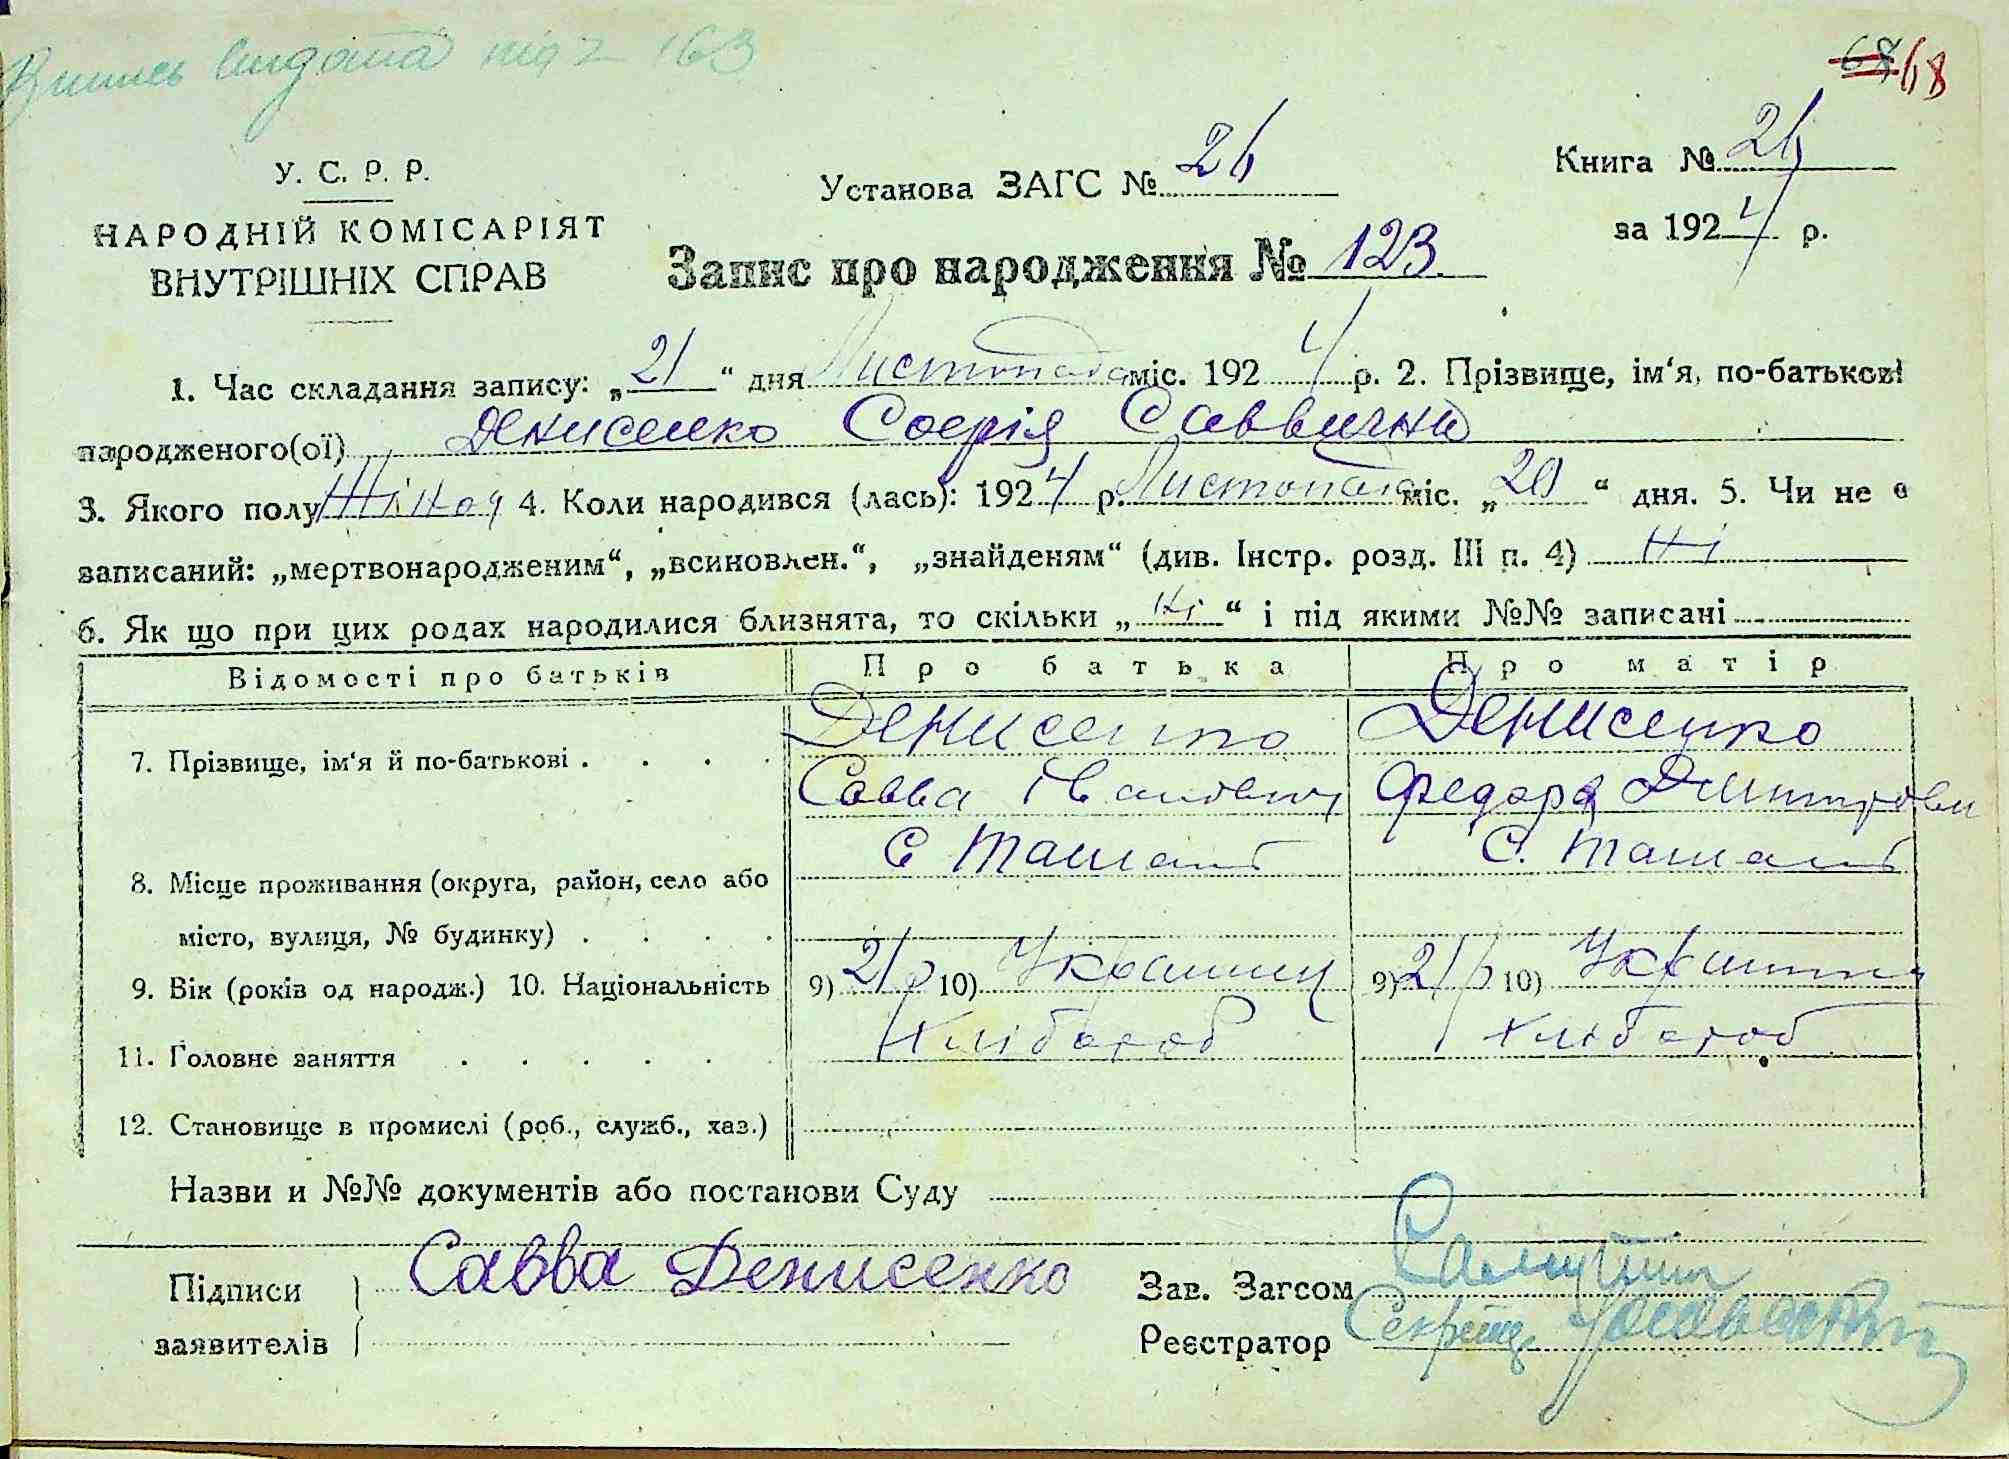 Випись видана під № 163
68 68
У. С. Р. Р.
НАРОДНІЙ КОМІСАРІЯТ
ВНУТРІШНІХ СПРАВ
Установа ЗАГС № 26
Книга № 26
за 1924 р.
Запис про народження № 123
1. Час складання запису: „21“ дня Листопада міс. 1924 р. 2. Прізвище, ім‘я, по-батькові
народженого(ої) Денисенко Софія Саввична
3. Якого полу Жіноч 4. Коли народився (лась): 1924 р. Листопада міс. „20“ дня. 5. Чи не є
записаний: „мертвонародженим“, „всиновлен.“, „знайденям“ (див. Інстр. розд. III п. 4) Ні
6. Як що при цих родах народилися близнята, то скільки „Ні“ і під якими №№ записані
Відомості про батьків Про батька Про матір
7. Прізвище, ім‘я й по-батькові Денисенко Денисенко
Савва Іванович Федора Дмитрівни
С С.
8. Місце проживання (округа, район, село або
місто, вулиця, № будинку)
9. Вік (років од народж.) 10. Національність 9) 21 р 10) Українец 9) 21 р 10)
11. Головне заняття Хлібороб Хлібороб
12. Становище в промислі (роб., служб., хаз.)
Назви и №№ документів або постанови Суду
Підписи Савва Денисенко
заявителів
Зав. Загсом
Реєстратор